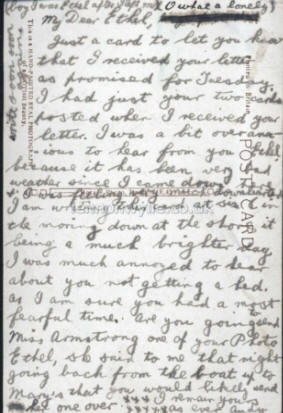 boy I was tired after Saturday O what a lonely
My Dear Ethel,
Just a card to let you know
that I received your letter
as promised for Tuesday.
I had just your two cards
posted when I received your
letter. I was a bit over anx
ious to hear from you Ethel
because it has been very bad
weather since I came down
I am writing this card at six in
the moring down at the shore it
being a much brighter day
I was much annoyed to hear
about you not getting a bed.
as I am sure you had a most
fearful time. Are you going to send
Miss Armstrong one of your Photo
Ethel, she said to me that night
going back from the boat up to
Mary's that you would likely send
her one over. xxx I remain yours
xxxxx as ever
write soon
THIS IS A
POST CARD